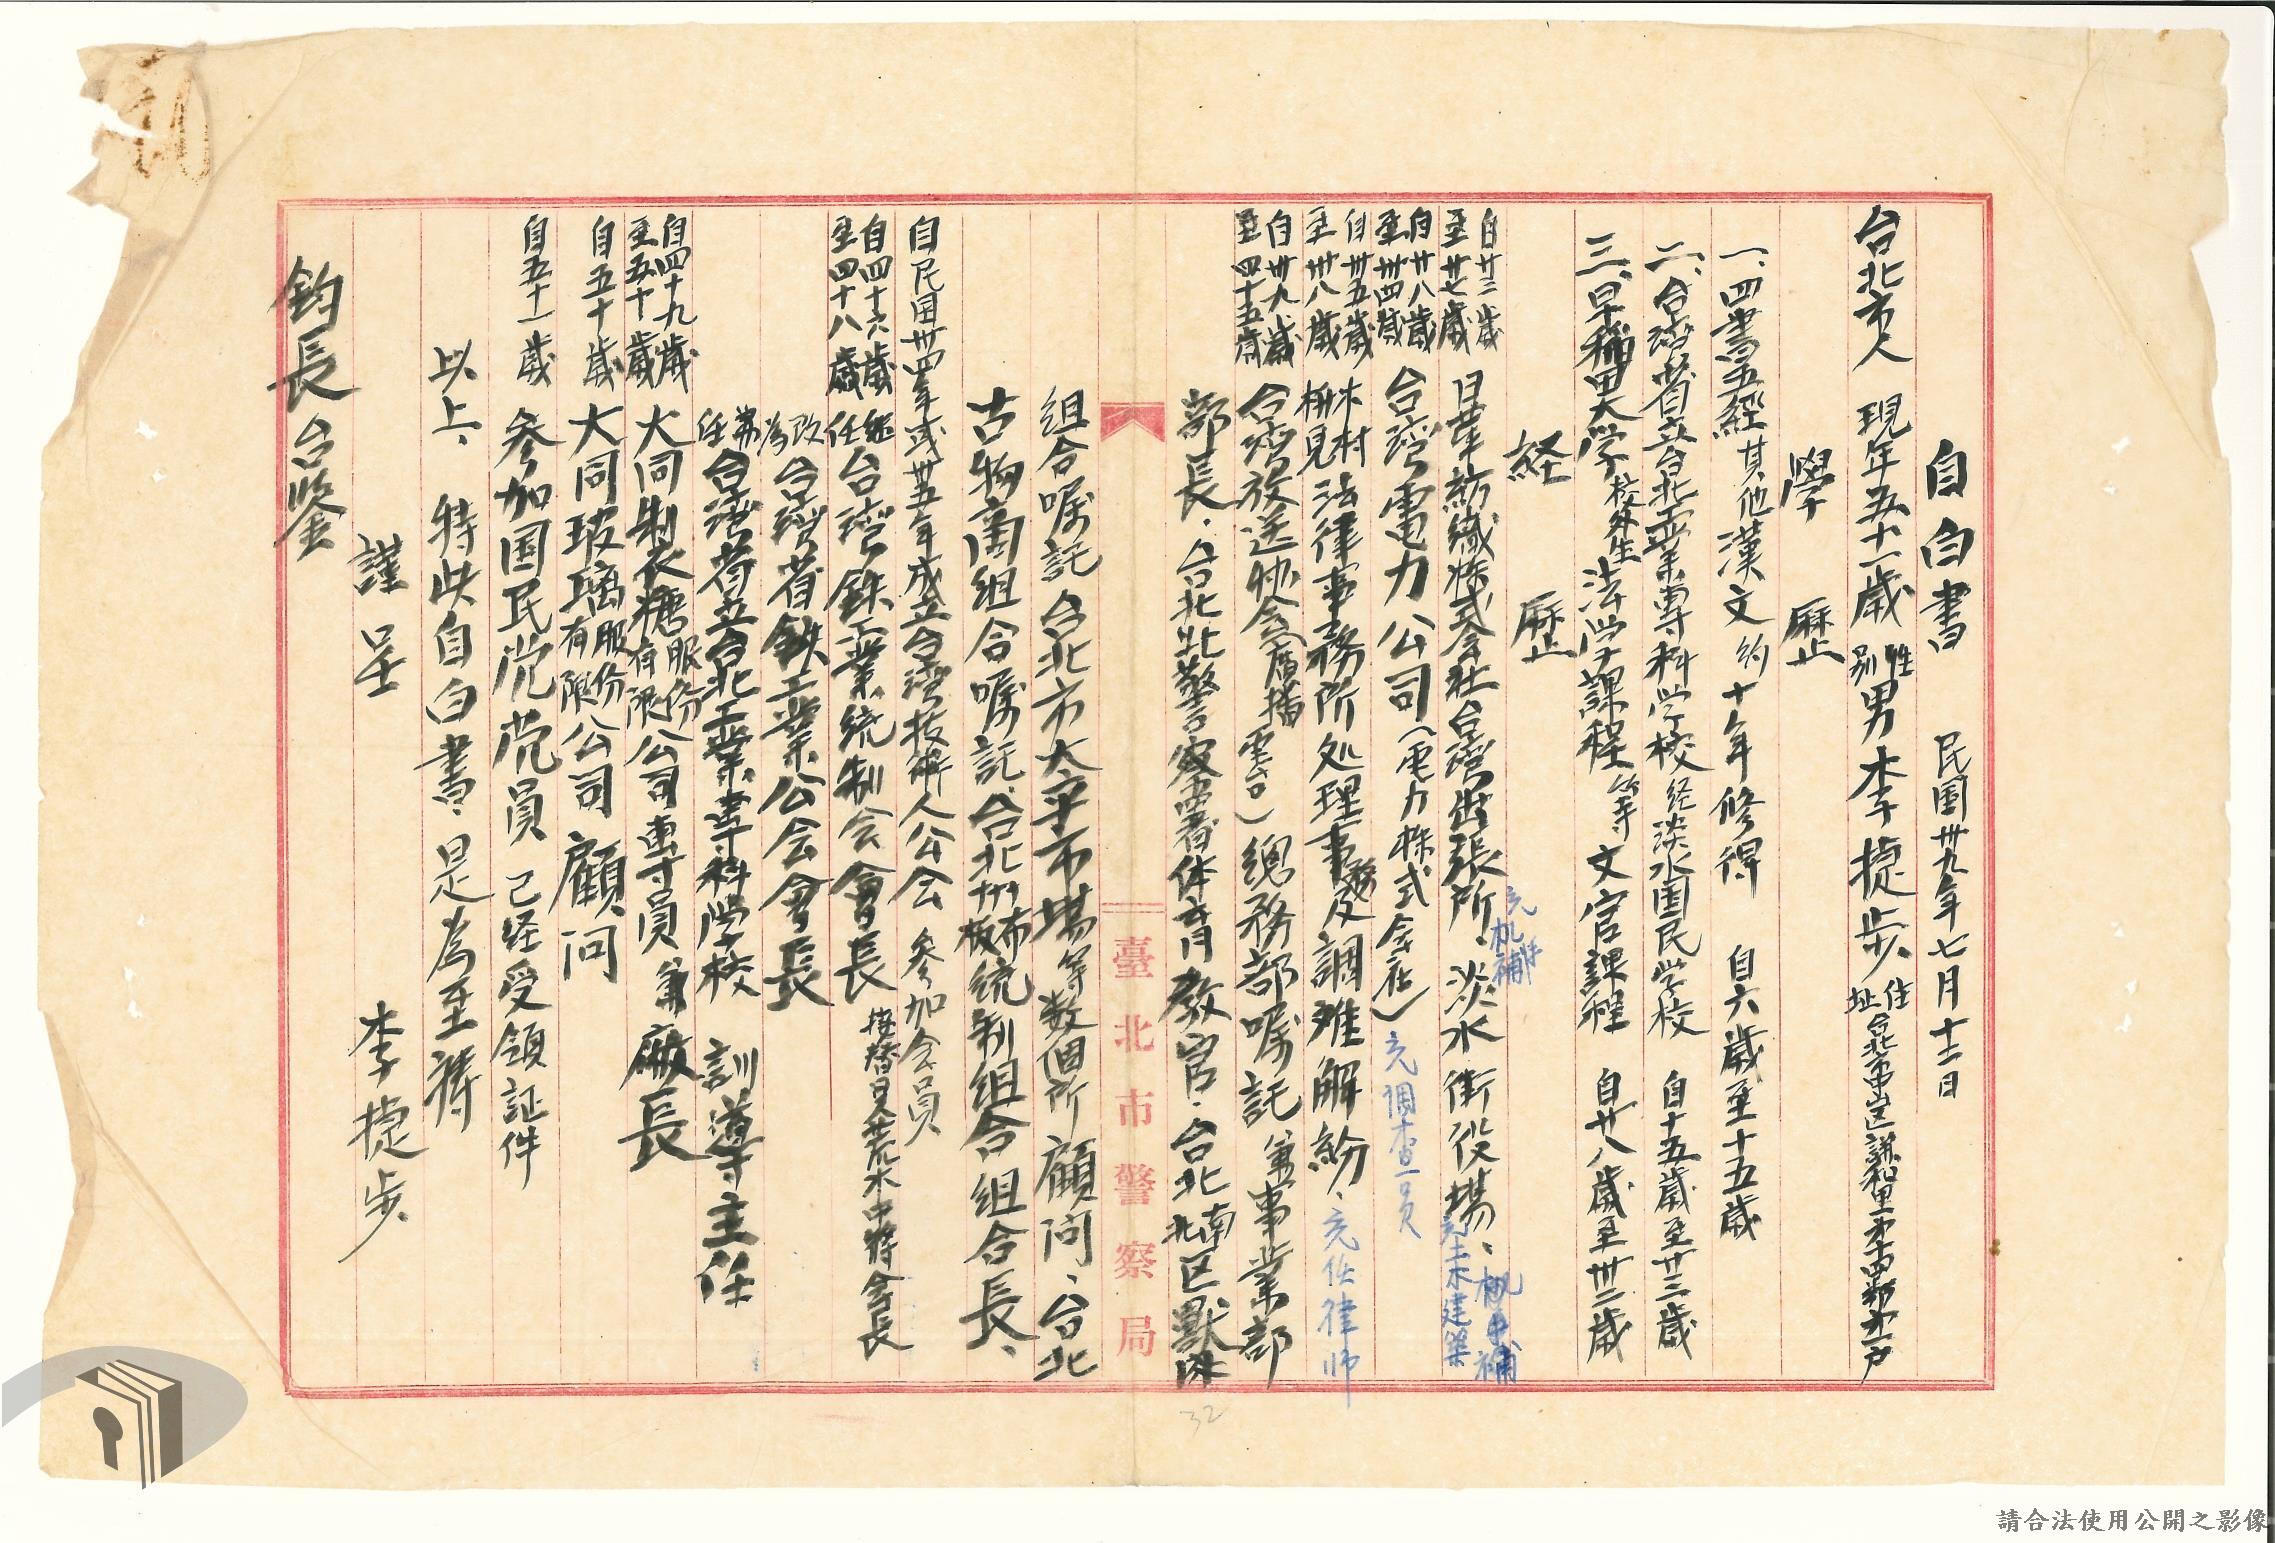 自白書　民国卅九年七月十二日
台北市人　現年五十一歲　性別男　李捷步、住址台北市中山区
學歷
一、四書五經其他漢文約十年修得　自六歲至十五歲
二、台湾省立台北工業専科学校　経淡水国民学校　自十五歲至廿三歲
三、早稲田大学校外生法学課程等文官課程　自廿八歲至卅二歲
経歷
自廿三歲至廿七歲　日華紡織株式会社台湾出張所、淡水街役場、
充机補
充土木建築
自廿八歲至卅四歲　台湾電力公司（電力株式会社）充調查員
自卅五歲至卅八歲　木村　法律事務所処理事務及調难解紛、充任律师
自卅九歲至四十五歲　台湾放送協会（廣播電台）総務部嘱託兼事業部
部長、台北北警察署体育教官、台北南北区獸
組合嘱託台北市太平市場等数個所顧问、台北
古物商組合嘱託、台北州布板統制組合組合長、
自民国卅四年或卅五年成立台湾技術人公会　参加会員
自四十六歲至四十八歲　継任台湾鉄工業統制会會長　接替日人荒木中將会長
改為台湾省鉄工業公会會長
兼任台湾省立台北工業専科学校　訓導主任
自四十九歲至五十歲　大同製衣糖服份有限公司専員兼廠長
自五十歲　大同玻璃服份有限公司顧问
自五十一歲　参加国民党党員　已経受領証件
以上、特此自白書、是為至禱
謹呈　李捷步、
鈞長台鑒
臺北市警察局
32
請合法使用公開之影像